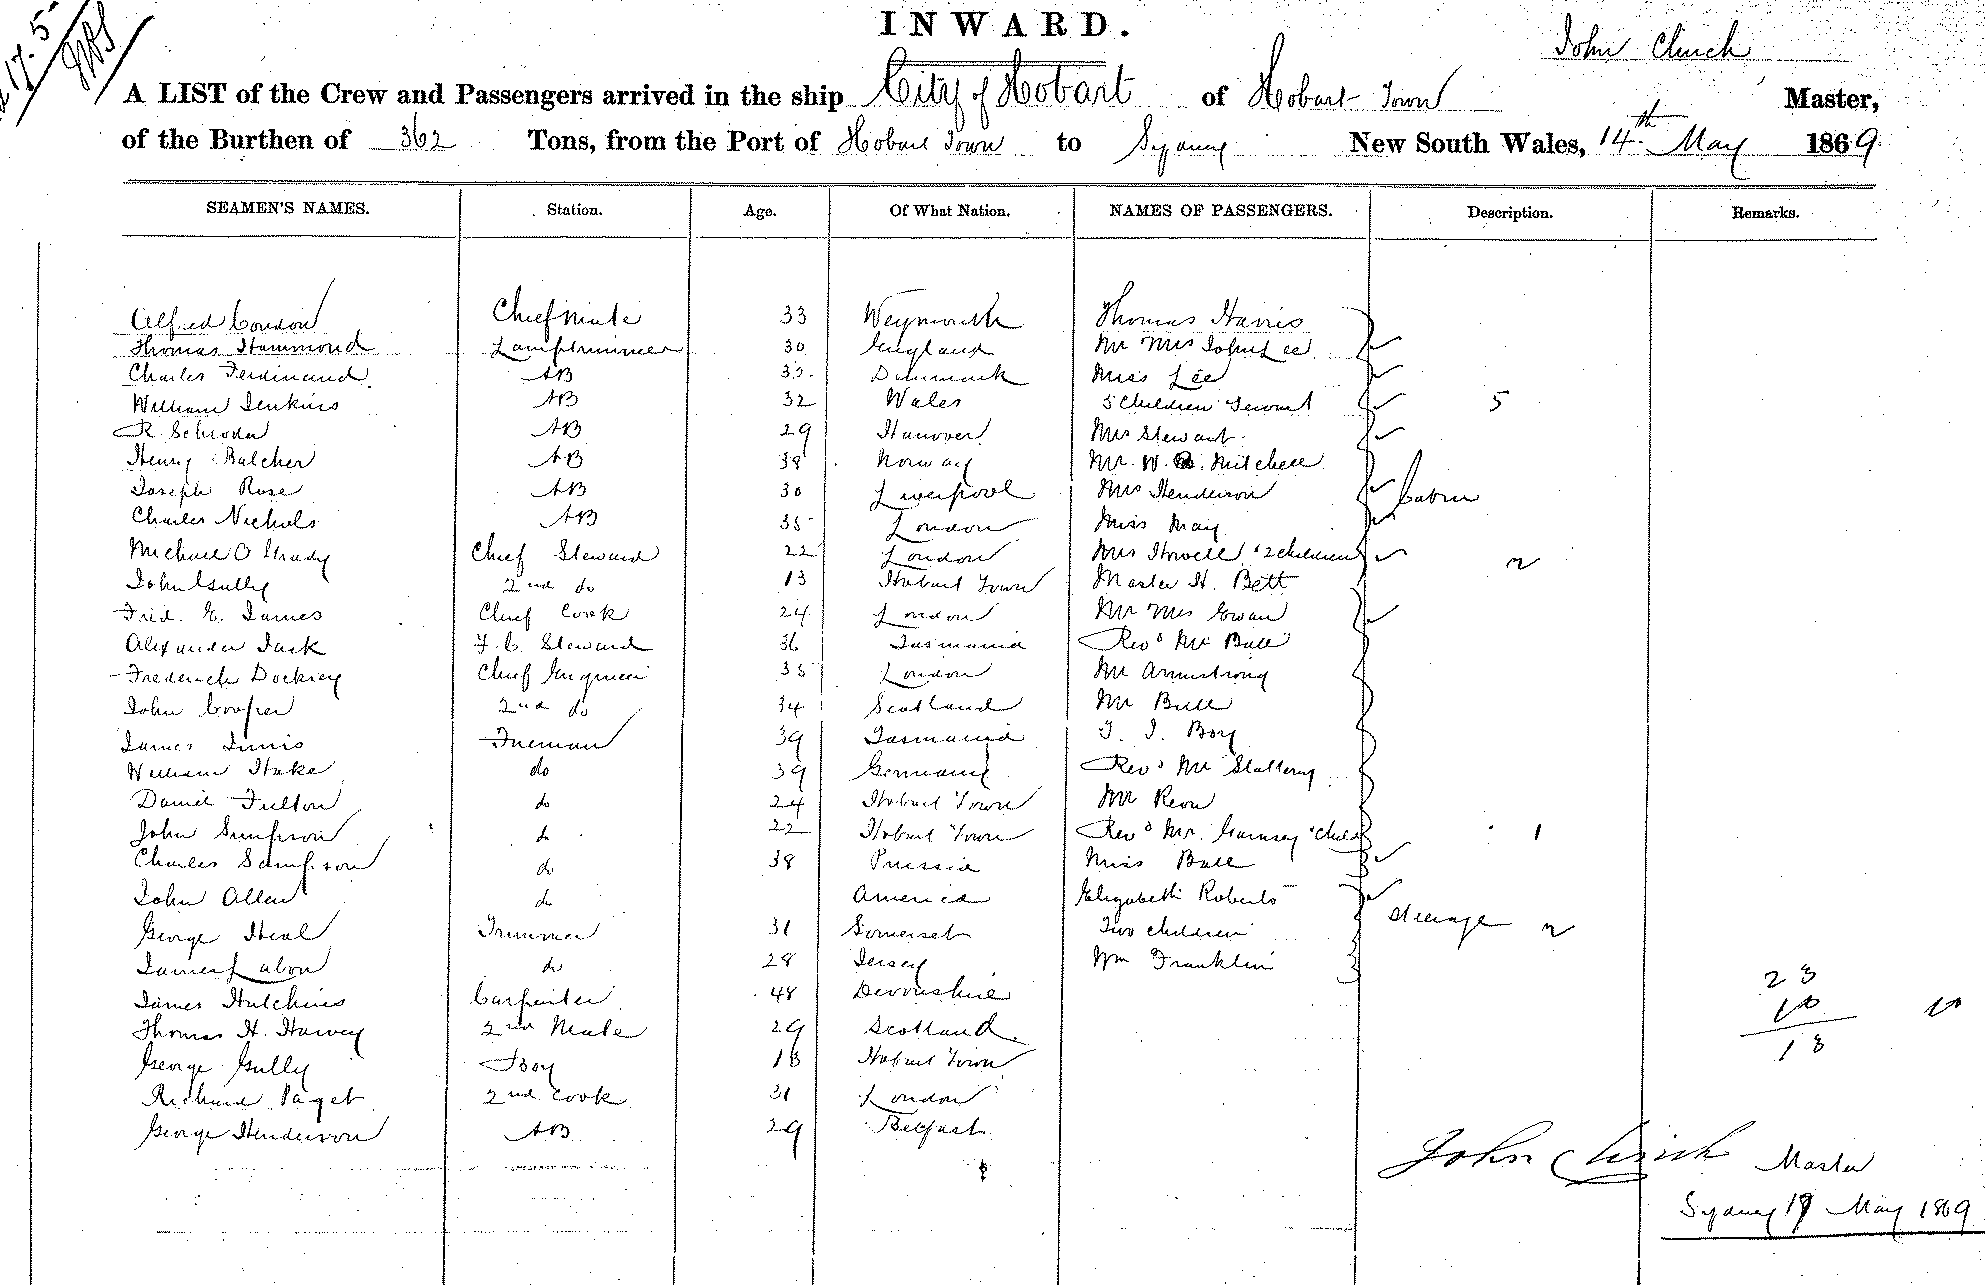 17. 5
INWARD.
John Clinch
A LIST of the Crew and Passengers arrived in the ship City of Hobart of Hobart Town Master,
of the Burthen of 362 Tons, from the Port of Hobart Town to Sydney New South Wales, 14th May 1869
SEAMEN'S NAMES. Station. Age. Of What Nation. NAMES OF PASSENGERS. Description. Remarks.
Alfred Condon Chief Mate 33 Weymouth Thomas Harris
Thomas Hammond Lamptrimmer 30 England Mr Mrs John Lee
Charles Ferdinand AB 33 Denmark Miss Lee
William Jenkins AB 32 Wales 5 Children Servant 5
R. Schroder AB 29 Hanover Mrs Stewart
Henry Balcher AB 38 Norway Mr. W. Mitchell
Joseph Rose AB 30 Liverpool Mrs Henderson Cabin
Charles Nichols AB 35 London Miss May
Michael O Grady Chief Steward 22 London Mrs Howell & 2 children 2
John Gully 2nd do 13 Hobart Town Master H. Bett
Fred. E. James Chief Cook 24 London Mr Mrs Ewan
Alexander Jack F. C. Steward 36 Tasmania Revd Mr Bull
Frederick Dockrey Chief Engineer 35 London Mr Armstrong
John Cooper 2nd do 34 Scotland Mr Bull
James Innis Fireman 39 Tasmania T. J. Boy
William Hake do 39 Germany Revd Mr Slattery
Daniel Fulton do 24 Hobart Town Mr Reon
John Simpson do 22 Hobart Town Revd Mr. Garnsey & Child 1
Charles Sampson do 38 Prussia Miss Ball
John Allen do America Elizabeth Roberts
George Heal Trimmer 31 Somerset Two children steerage 2
James Labon do 28 Jersey Wm Franklin
James Hutchins Carpenter 48 Devonshire 28
Thomas H. Harvey 2nd Mate 29 Scotland 10 10
George Gully Boy 18 Hobart Town 18
Richard Paget 2nd Cook 31 London
George Henderson AB 29 Belfast
John Clinch Master
Sydney 17 May 1869